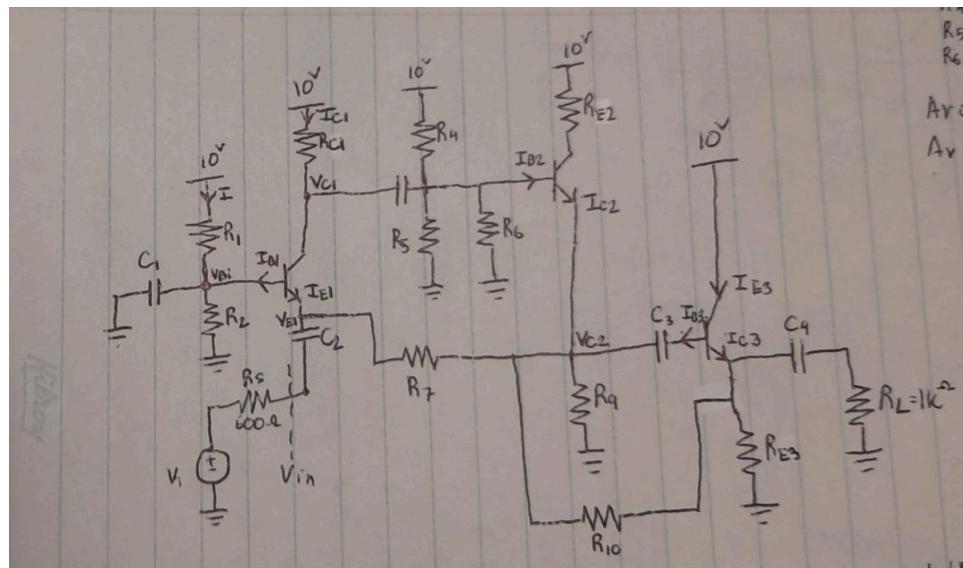 R5
R6
Av
Av
10V
I
R1
C1
VB1
R2
10V
IC1
RC1
VC1
IB1
IE1
VE1
C2
RS
600Ω
Vi
Vin
10V
R4
R5
R6
10V
RE2
IB2
IC2
VC2
R7
R9
R10
10V
IE3
C3
IB3
IC3
C4
RE3
RL=1kΩ
Kilroy